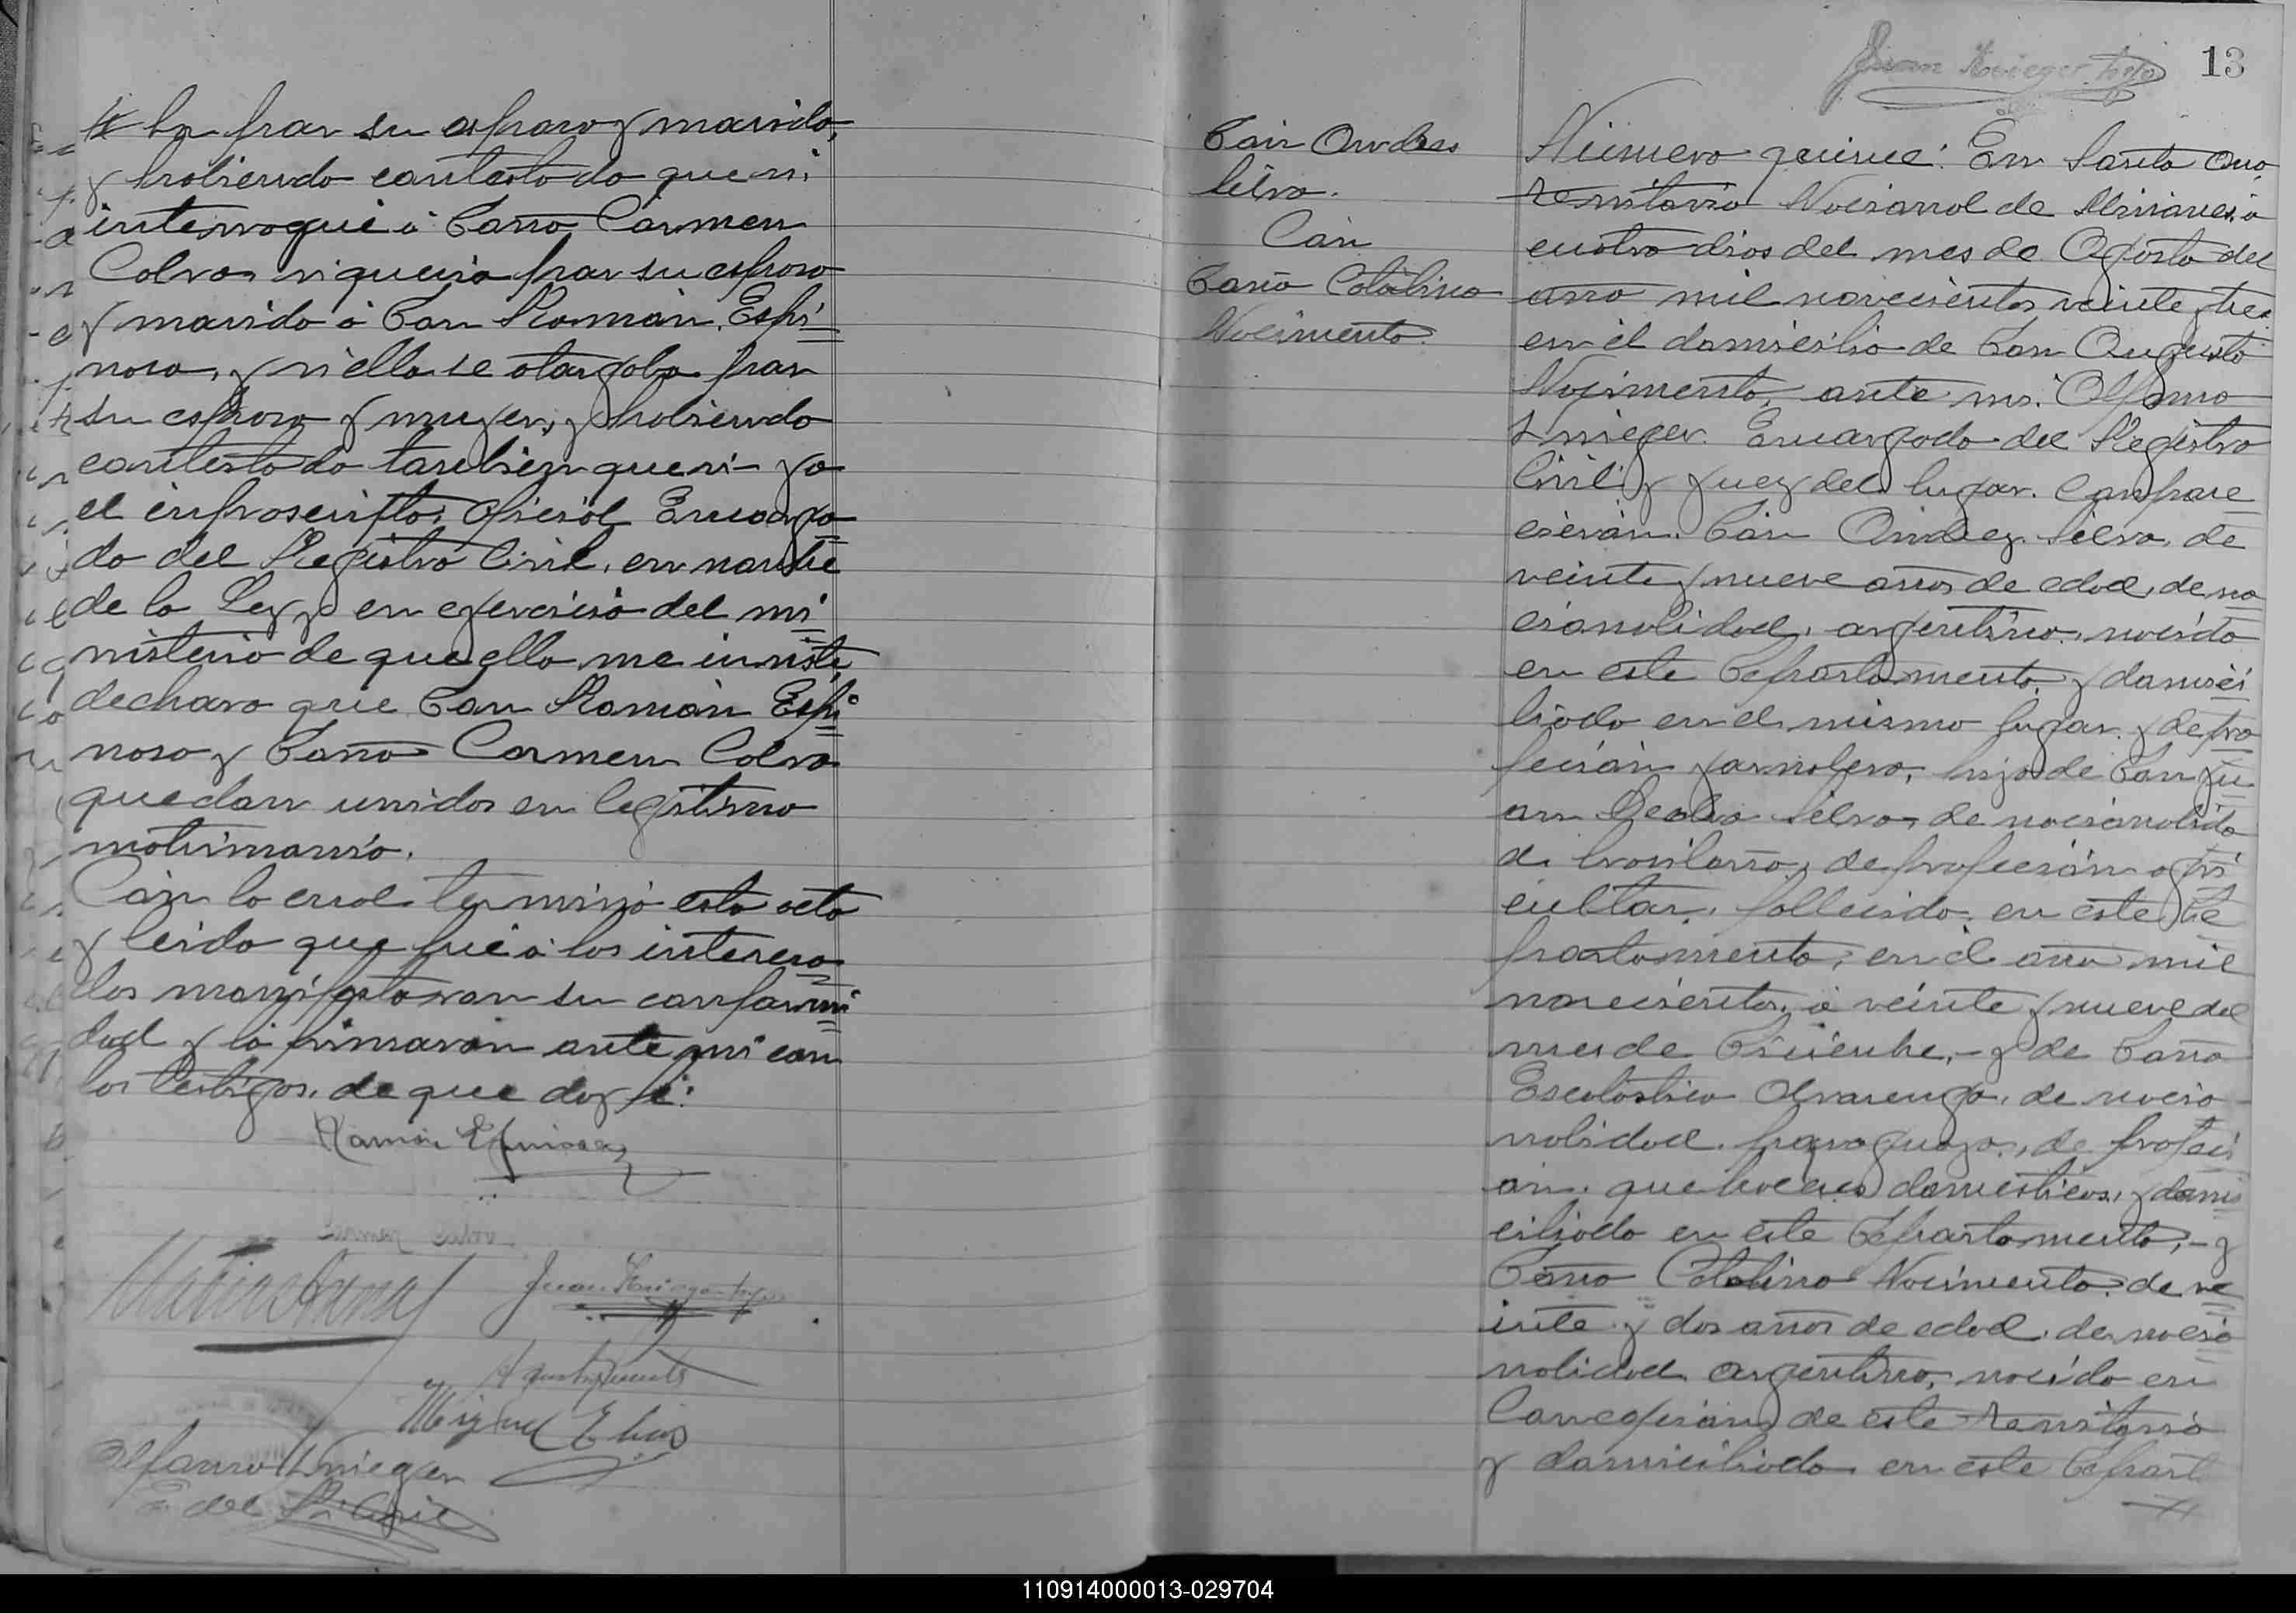 ba por su esposo y marido,
y habiendo contestado que si
interrogué á Doña Cármen
Calvo si queria por su esposo
y marido á Don Román Espi
nosa, y si ella se otorgaba por
su esposa y mujer, y habiendo
contestado tambien que si yo
el infrascripto, Oficial Encarga
do del Registro Civil, en nombre
de la Ley y en ejercicio del mi
nisterio de que ella me inviste,
declaro que Don Román Espi
nosa y Doña Carmen Calvo
quedan unidos en legítimo
matrimonio.
Con lo cual terminó esta acta
y leida que fué á los interesa
dos manifestaron su conformi
dad y la firmaron ante mi con
los testigos, de que doy fé:
Ramón Espinosa
Carmen Calvo
Matias Arnal
Juan Krieger hijo
Miguel Elias
Alfonso Krieger
E. del R. Civil
Juan Krieger hijo
13
Don
Silva.
Con
Doña Catalina
Nacimento.
Número quince: En Santa Ana
Territorio Nacional de Misiones, á
cuatro dias del mes de Agosto del
año mil novecientos veinte y tres
en el domicilio de Don Augusto
Nacimento, ante mi: Alfonso
Krieger. Encargado del Registro
Civil, y Juez del lugar. Compare
cieron: Don Silva, de
veinte y nueve años de edad, de na
cionalidad, argentino, nacido
en este Departamento, y domici
liado en el mismo lugar, y de pro
fesión jornalero, hijo de Don Ju
an Silva, de nacionalida
d, brasilero, de profesión agri
cultor, fallecido, en este De
partamento, en el año mil
novecientos, á veinte y nueve del
mes de Diciembre, - y de Doña
Escolástica Alvarenga, de nacio
nalidad, paraguaya, de profesi
ón, quehaceres domésticos, y domi
ciliada en este Departamento, - y
Doña Catalina Nacimento, de ve
inte y dos años de edad, de nacio
nalidad argentina, nacida en
Concepción, de este Territorio
y domiciliada en este Depart